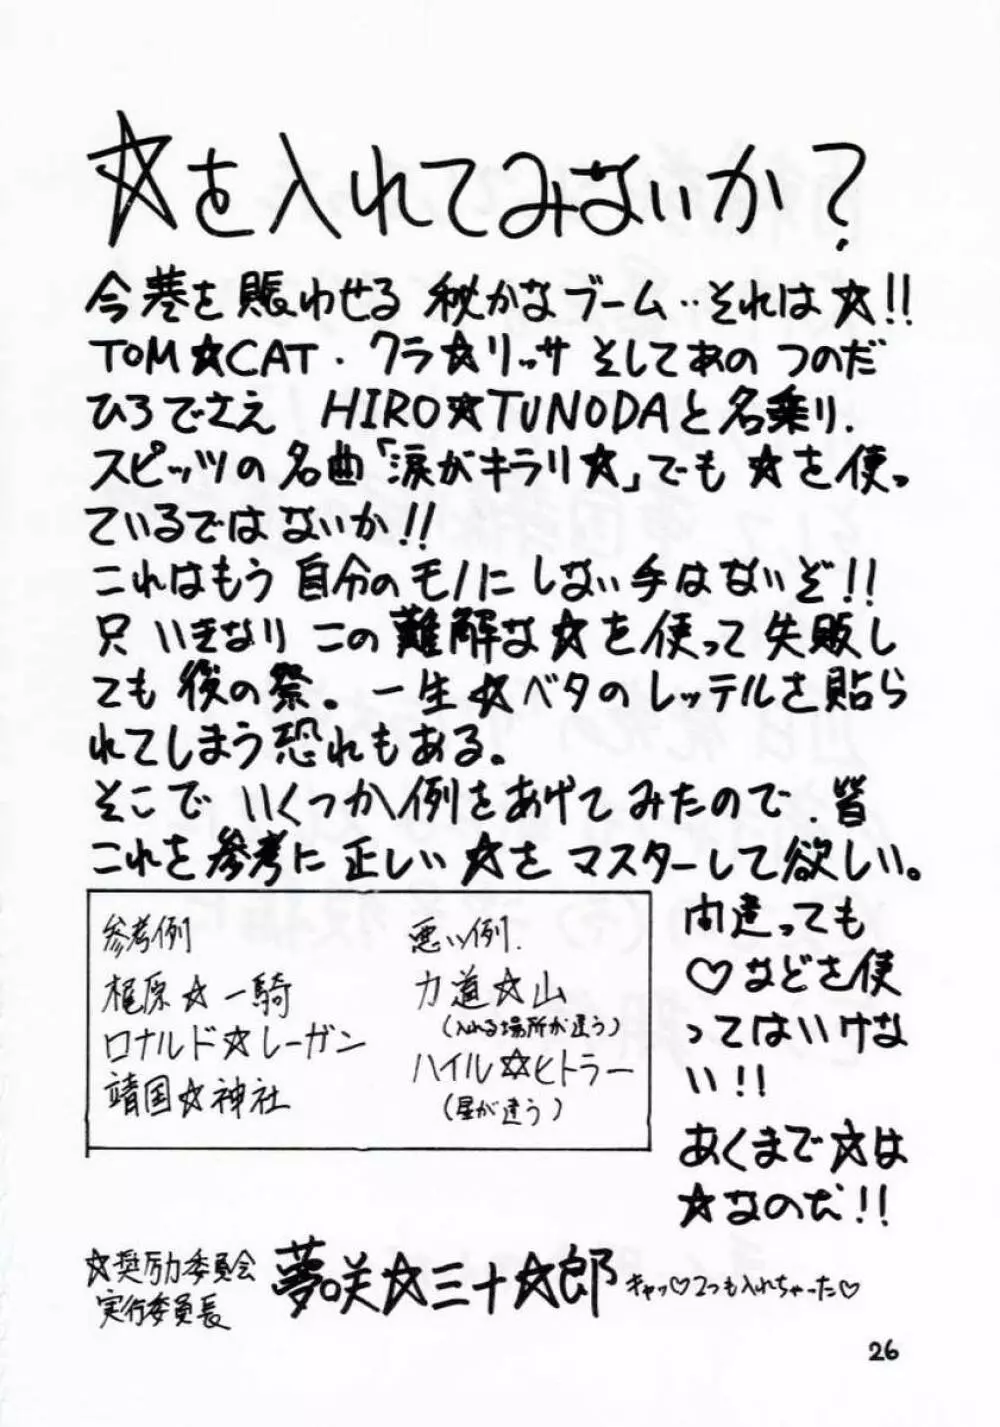 ☆を入れてみないか?
今巷を賑わせる 秘かなブーム‥それは☆!!
TOM☆CAT・クラ☆リッサ そしてあの つのだ
ひろでさえ HIRO☆TUNODAと名乗り、
スピッツの名曲「涙がキラリ☆」でも ☆を使っ
ているではないか!!
これはもう 自分のモノにしない手はないぞ!!
只 いきなり この難解な☆を使って失敗し
ても後の祭。一生☆ベタのレッテルを貼ら
れてしまう恐れもある。
そこで いくつか例をあげてみたので、皆
これを参考に正しい☆をマスターして欲しい。
参考例
梶原☆一騎
ロナルド☆レーガン
靖国☆神社
悪い例.
力道☆山
(入れる場所が違う)
ハイル✡ヒトラー
(星が違う)
間違っても
♡などを使
ってはいけな
い!!
あくまで☆は
☆なのだ!!
☆奨励委員会
実行委員長
夢咲☆三十☆郎
キャッ♡2つも入れちゃった♡
26